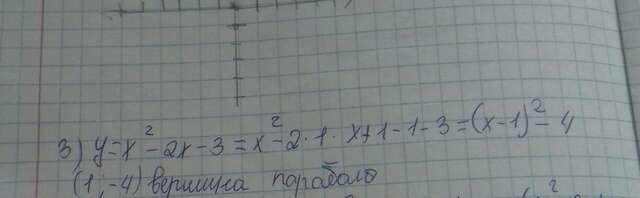 3) y=x²-2x-3=x²-2·1·x+1-1-3=(x-1)²-4
(1;-4) вершина параболы